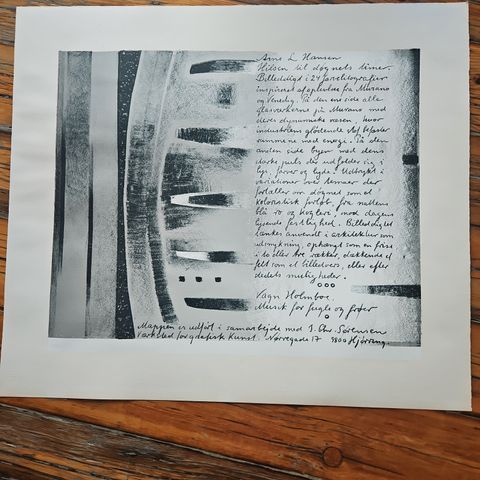 Arne L Hansen
Hilsen til døgnets timer.
Billeddigt i 24 farvelitografier
inspireret af oplevelser fra Murano
og Venedig. På den ene side alle
glasværkerne på Murano med
deres dynamiske væsen, hvor
industriens glødende stof befolker
rummene med energi. På den
anden side byen med dens
puls der udfolder sig i
lys, farver og lyde. Udtrykt i
variationer over temaer der
fortæller om døgnet som et
koloristisk forløb, fra nattens
blå ro og mod dagens
lysende festlighed. Billeddigtet
tænkes anvendt i arkitekturen som
udsmykning, ophængt som en frise
i to eller tre rækker, dækkende et
felt som et billedvers, eller efter
stedets muligheder.
Vagn Holmboe.
Musik for fugle og frøer
Mappen er udført i samarbejde med J. Chr. Sørensen
Værksted for grafisk Kunst. Nørregade 17 9800 Hjørring.